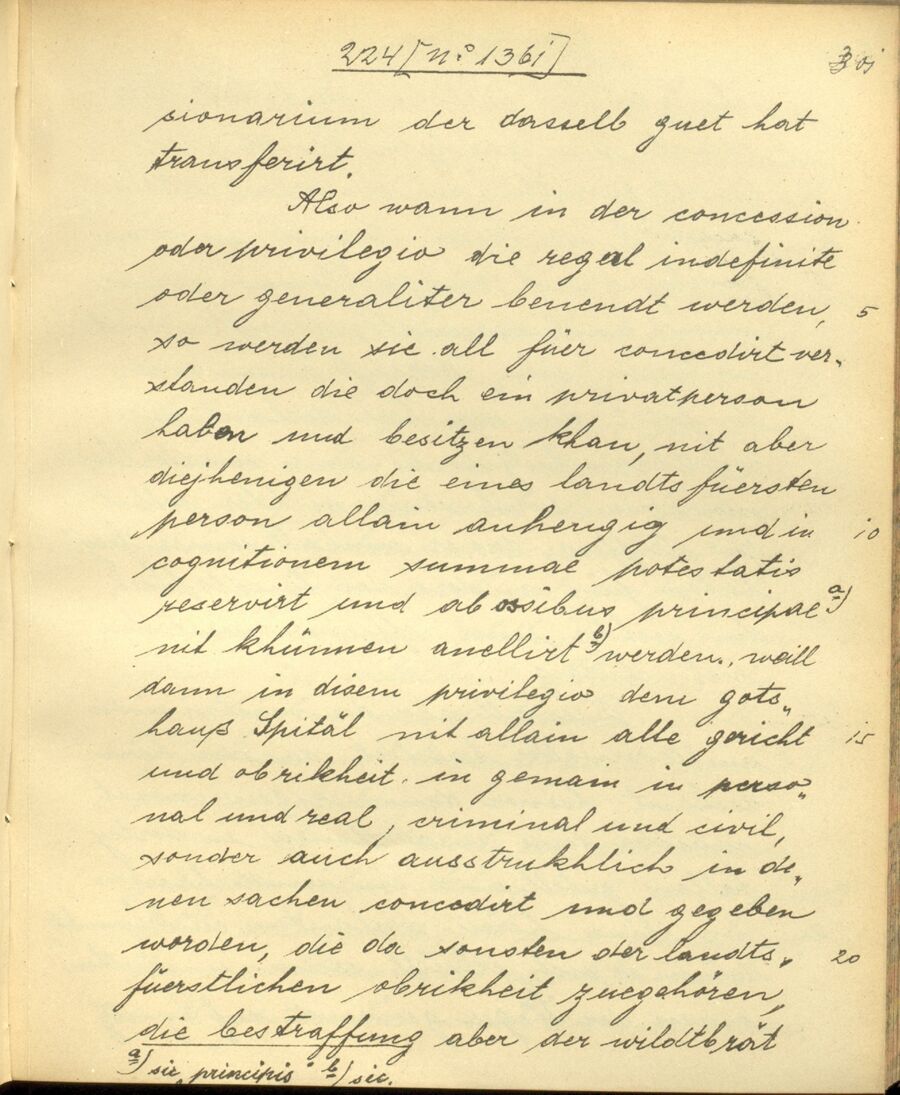 224 [N:o 1361]
sionarium der dasselb guet hat
transferirt.
Also wann in der concession
oder privilegio die regal indefinite
oder generaliter benendt werden, 5
so werden sie all füer concedirt ver„
standen die doch ein privatperson
haben und besitzen khan, nit aber
diejhenigen die eines landtsfüersten
person allain anhengig und in 10
cognitionem summae potestatis
reservirt und ab ossibus principae a)
nit khünnen anellirt b) werden., weill
dann in disem privilegio dem gots„
hauß Spitäl nit allain alle gericht 15
und obrikheit in gemain in perso„
nal und real, criminal und civil,
sonder auch ausstrukhlich in de„
nen sachen concedirt und gegeben
worden, die da sonsten der landts„ 20
füerstlichen obrikheit zuegehören,
die bestraffung aber der wildtbrät
a) sic „principis" b) sic.